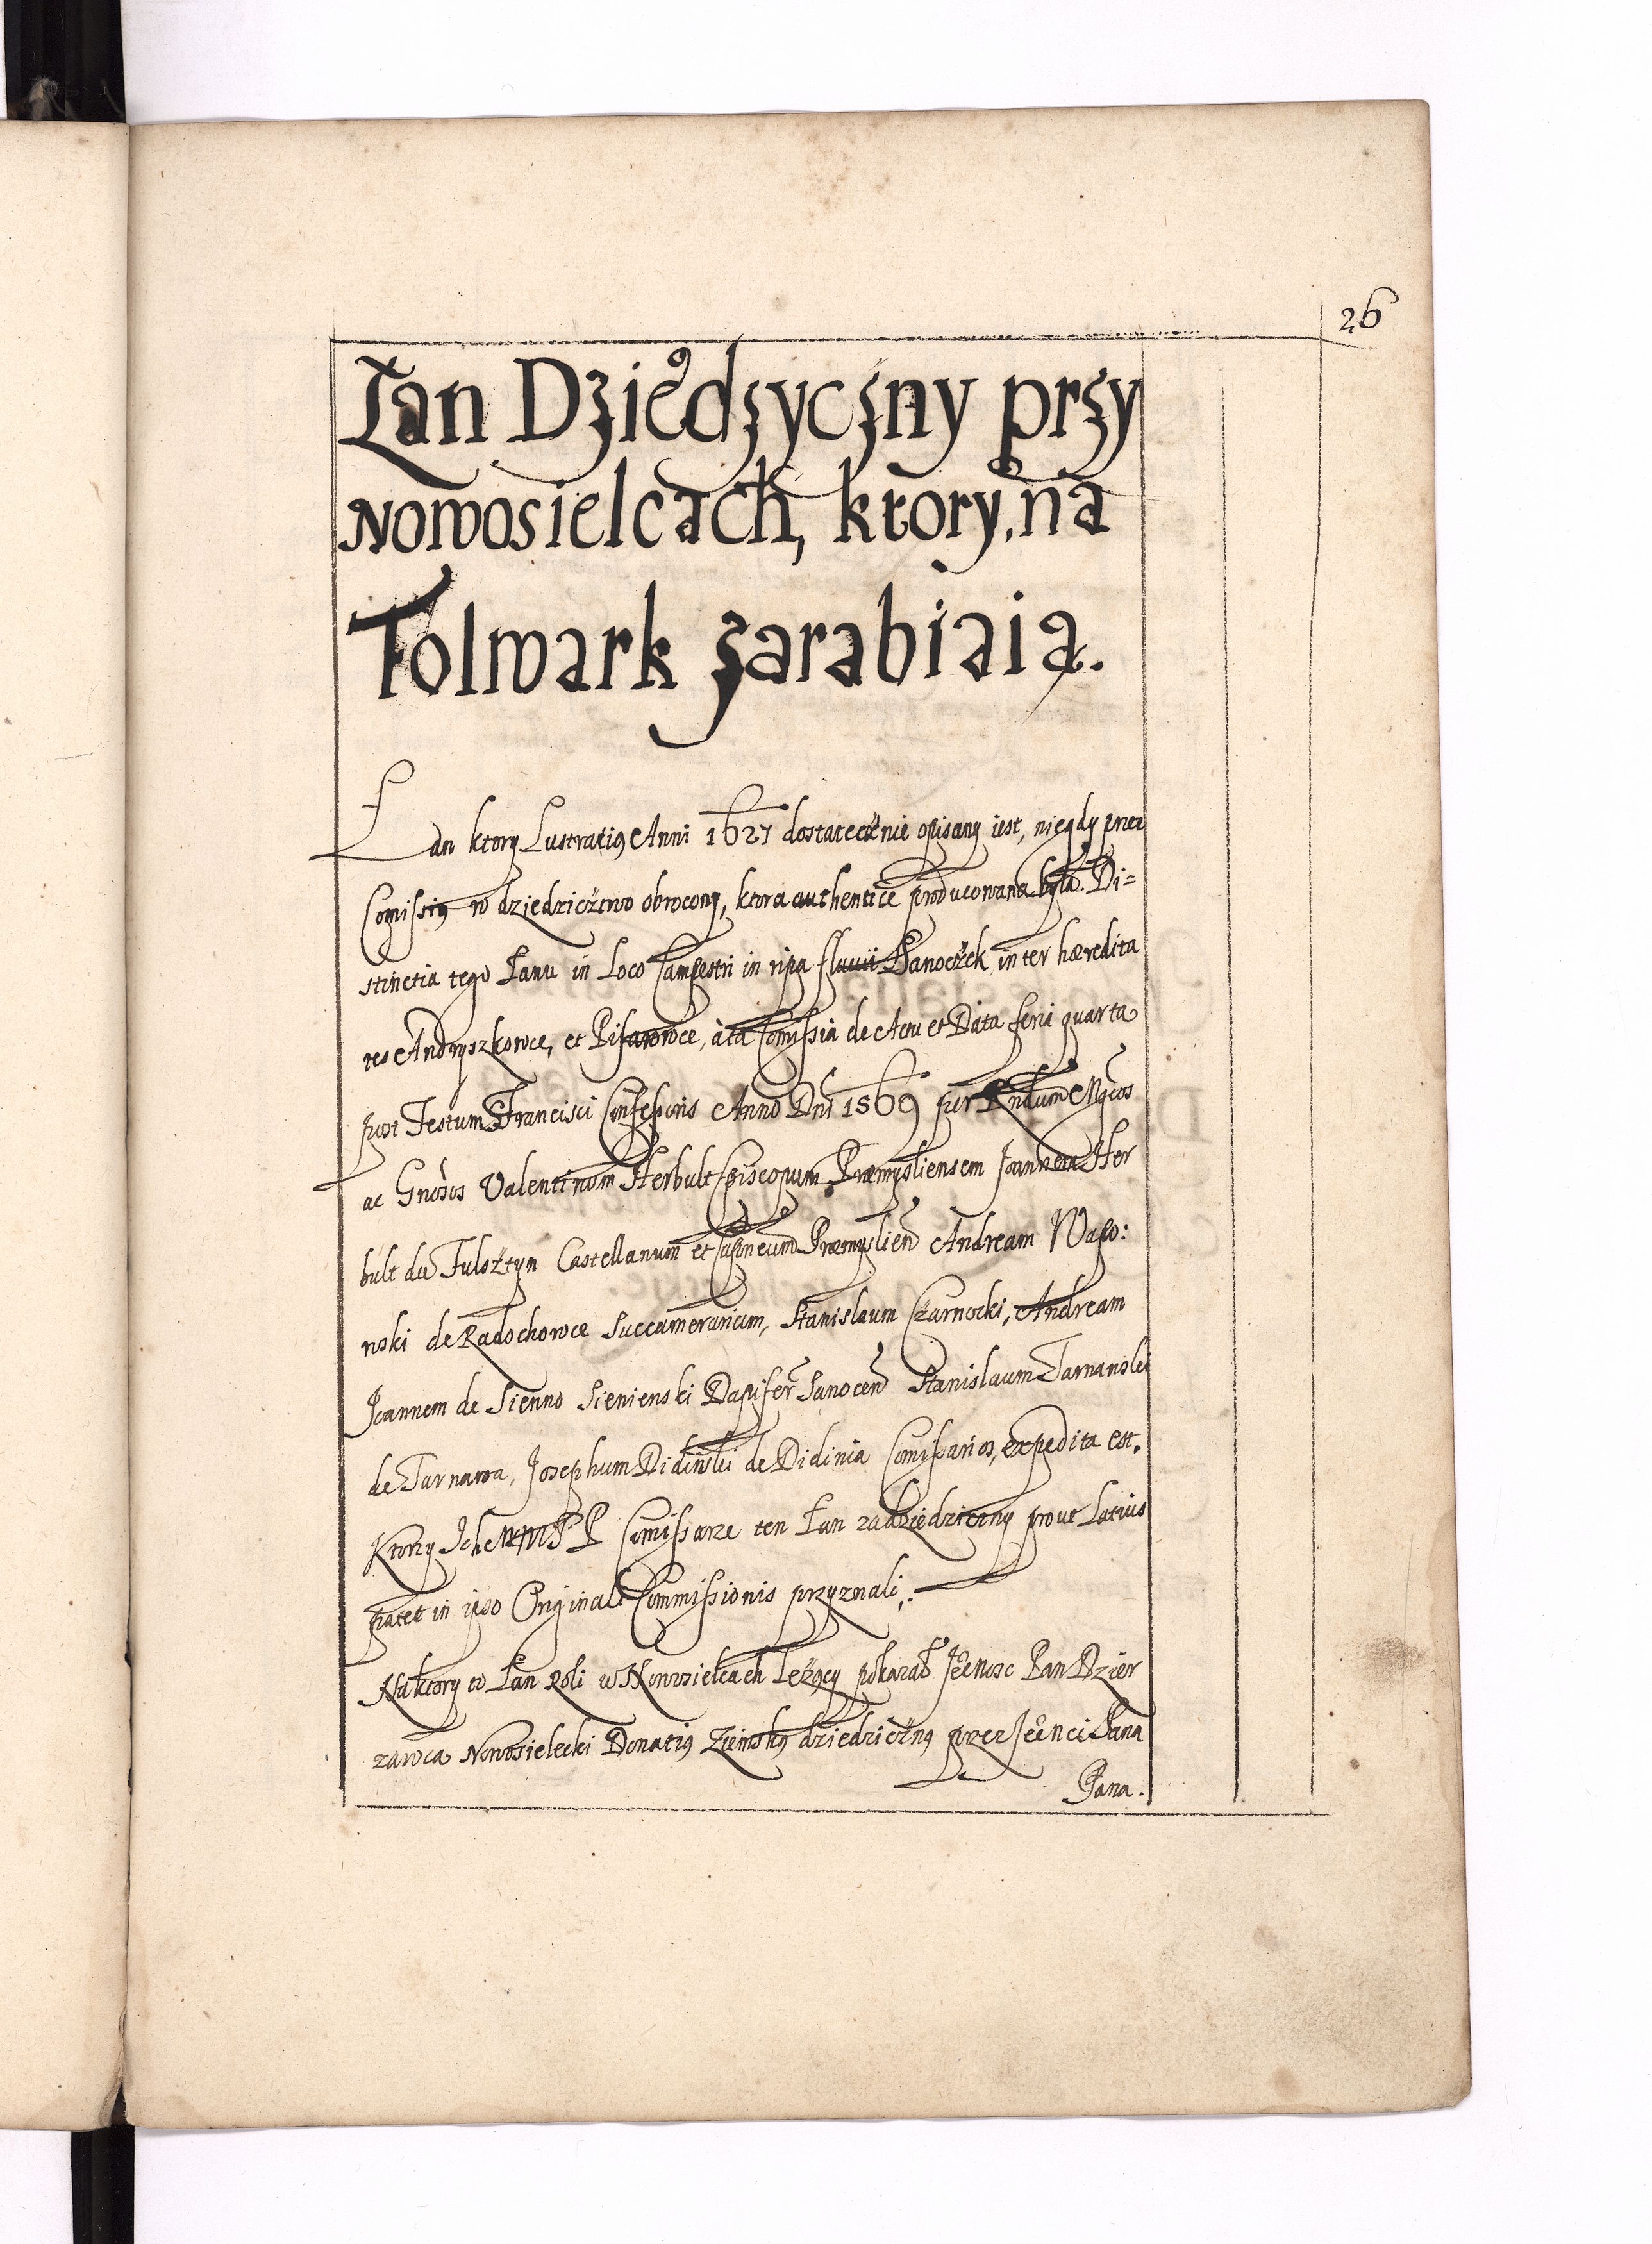 26
Łan Dziedzyczny przy
Nowosielcach, ktory, na
Folwark zarabiaią.
Łan ktory Lustratią Anni 1627 dostatecżnie opisany iest, niegdy przez
Comissią w dziedzicżtwo obrocony, ktora authentice producowana była. Di=
stinctia tego Łanu in Loco Campestri in ripa fluvii Sanocżek, inter hæredita
tes Andryszkowce, et Pisarowce, àta Comissia de Actu et Data feria quarta
post Festum S Francisci Confessoris Anno Dni 1569 per Rndum Mgcos
ac Gnosos Valentinum Herbult Episcopum Præmysliensem Joannem Her
bult de Fulsztyn Castellanum et Capneum Præmyslien Andream Wapo:
wski de Radochowce Succamerarium, Stanislaum Czarnocki, Andream
Joannem de Sienno Sienienski Dapifer Sanocen Stanislaum Tarnawski
de Tarnawa, Josephum Didinski de Didinia Comissarios, expedita est.
Ktorzy Ich MM PP Comissarze ten Łan zadziedziczny prout Latius
patet in ipso Originali Commissionis przyznali,.
Na ktory to Łan Roli w Nowosielcach Leżący pokazał Jeo Mosc Pan Dzier
zawca Nowosielecki Donatią Ziemską dziedziczną przez Jeo Mci Pana
Pana.